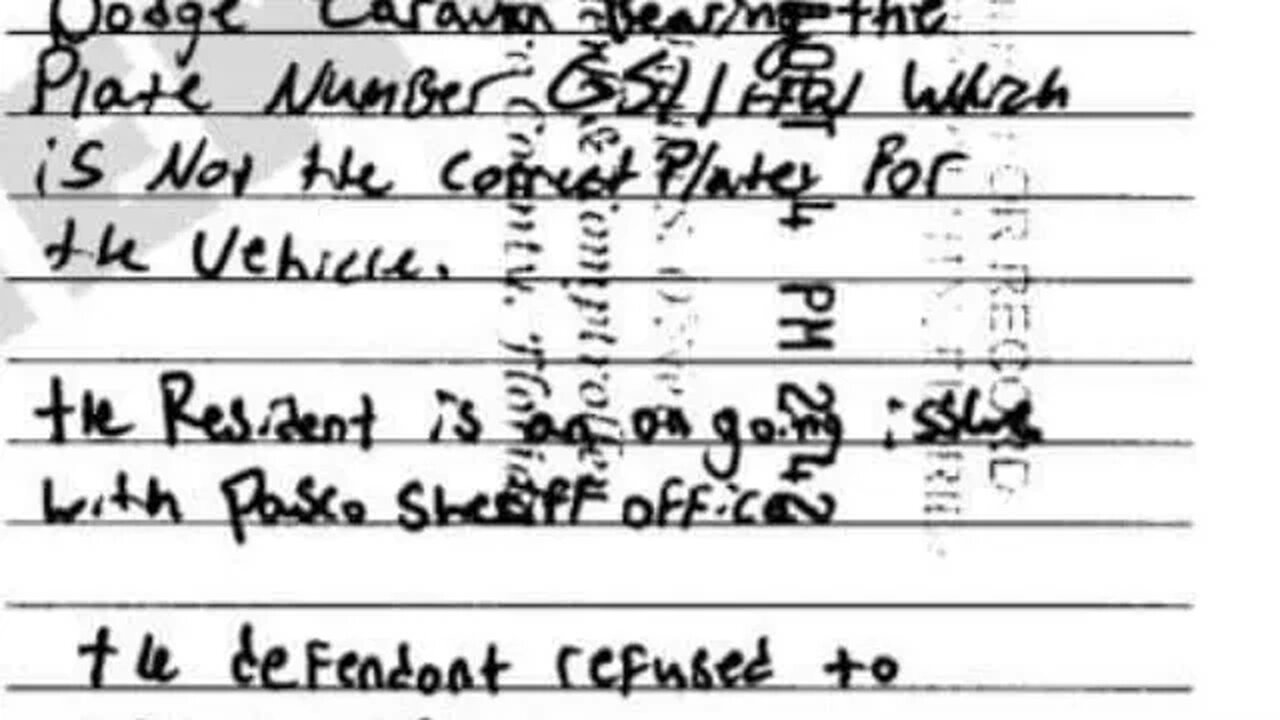 Dodge Caravan Bearing the
Plate Number which
is Not the Correct Plates For
the Vehicle.
the Resident is an on going issue
with Pasco Sheriff office
the defendant refused to
OCT 4 PM 2:42
FOR RECORD
& Comptroller
County, Florida